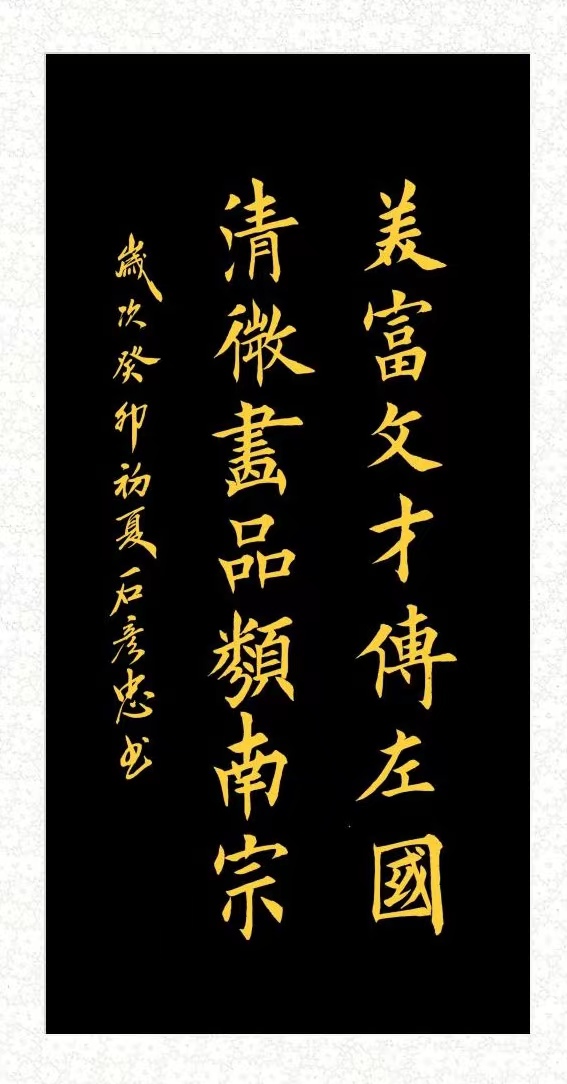 美富文才傳左國
清微畫品類南宗
歲次癸卯初夏石彥忠书